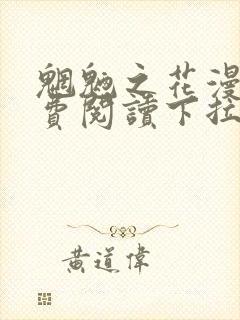 魍魎之花漫
費閱讀下拉
黃道偉